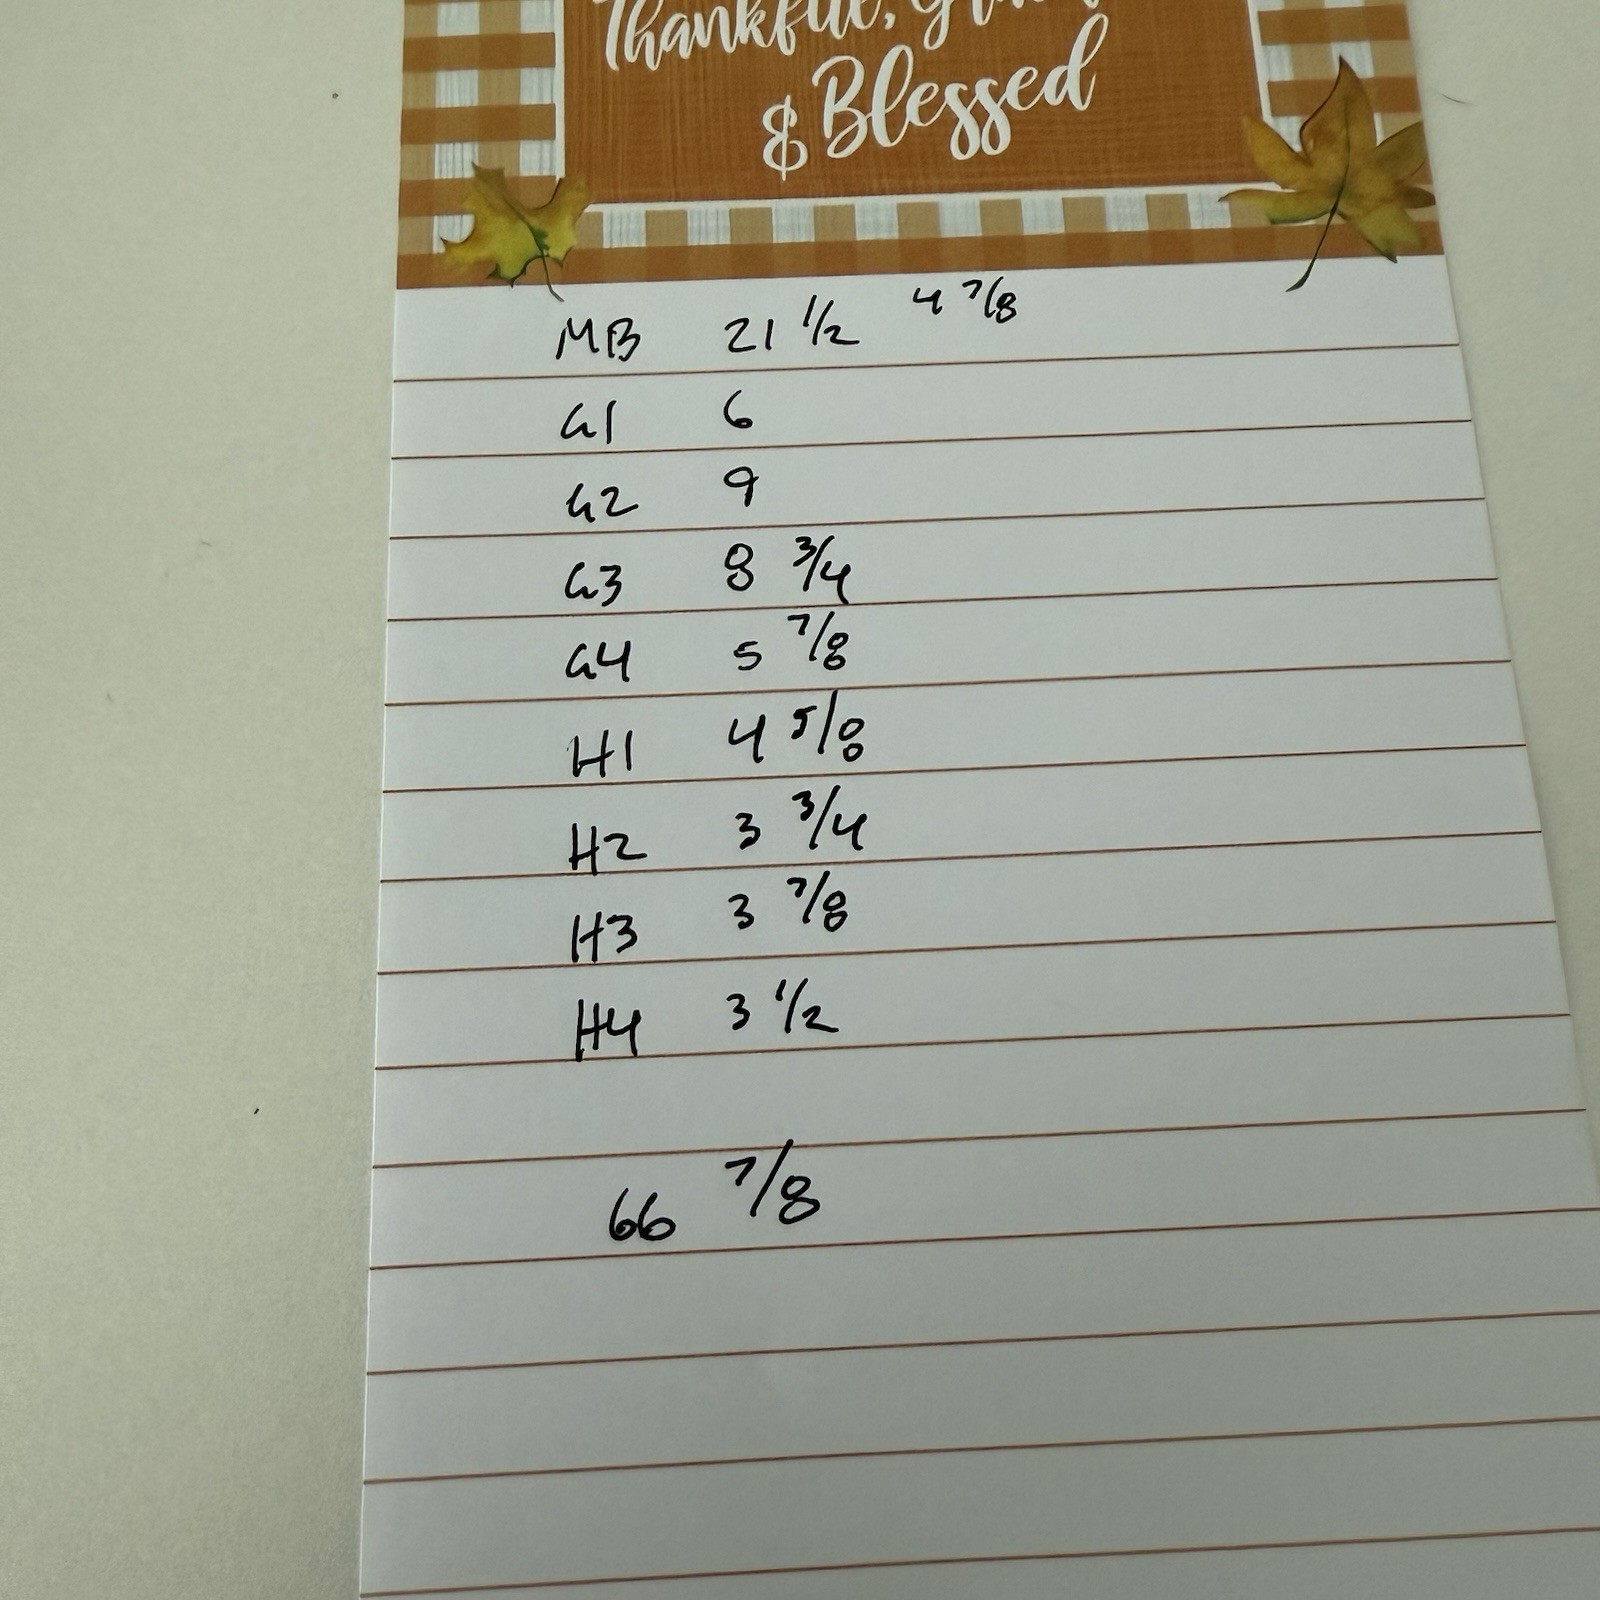 Thankful,
& Blessed
MB 21 1/2 4 7/8
G1 6
G2 9
G3 8 3/4
G4 5 7/8
H1 4 5/8
H2 3 3/4
H3 3 7/8
H4 3 1/2
66 7/8